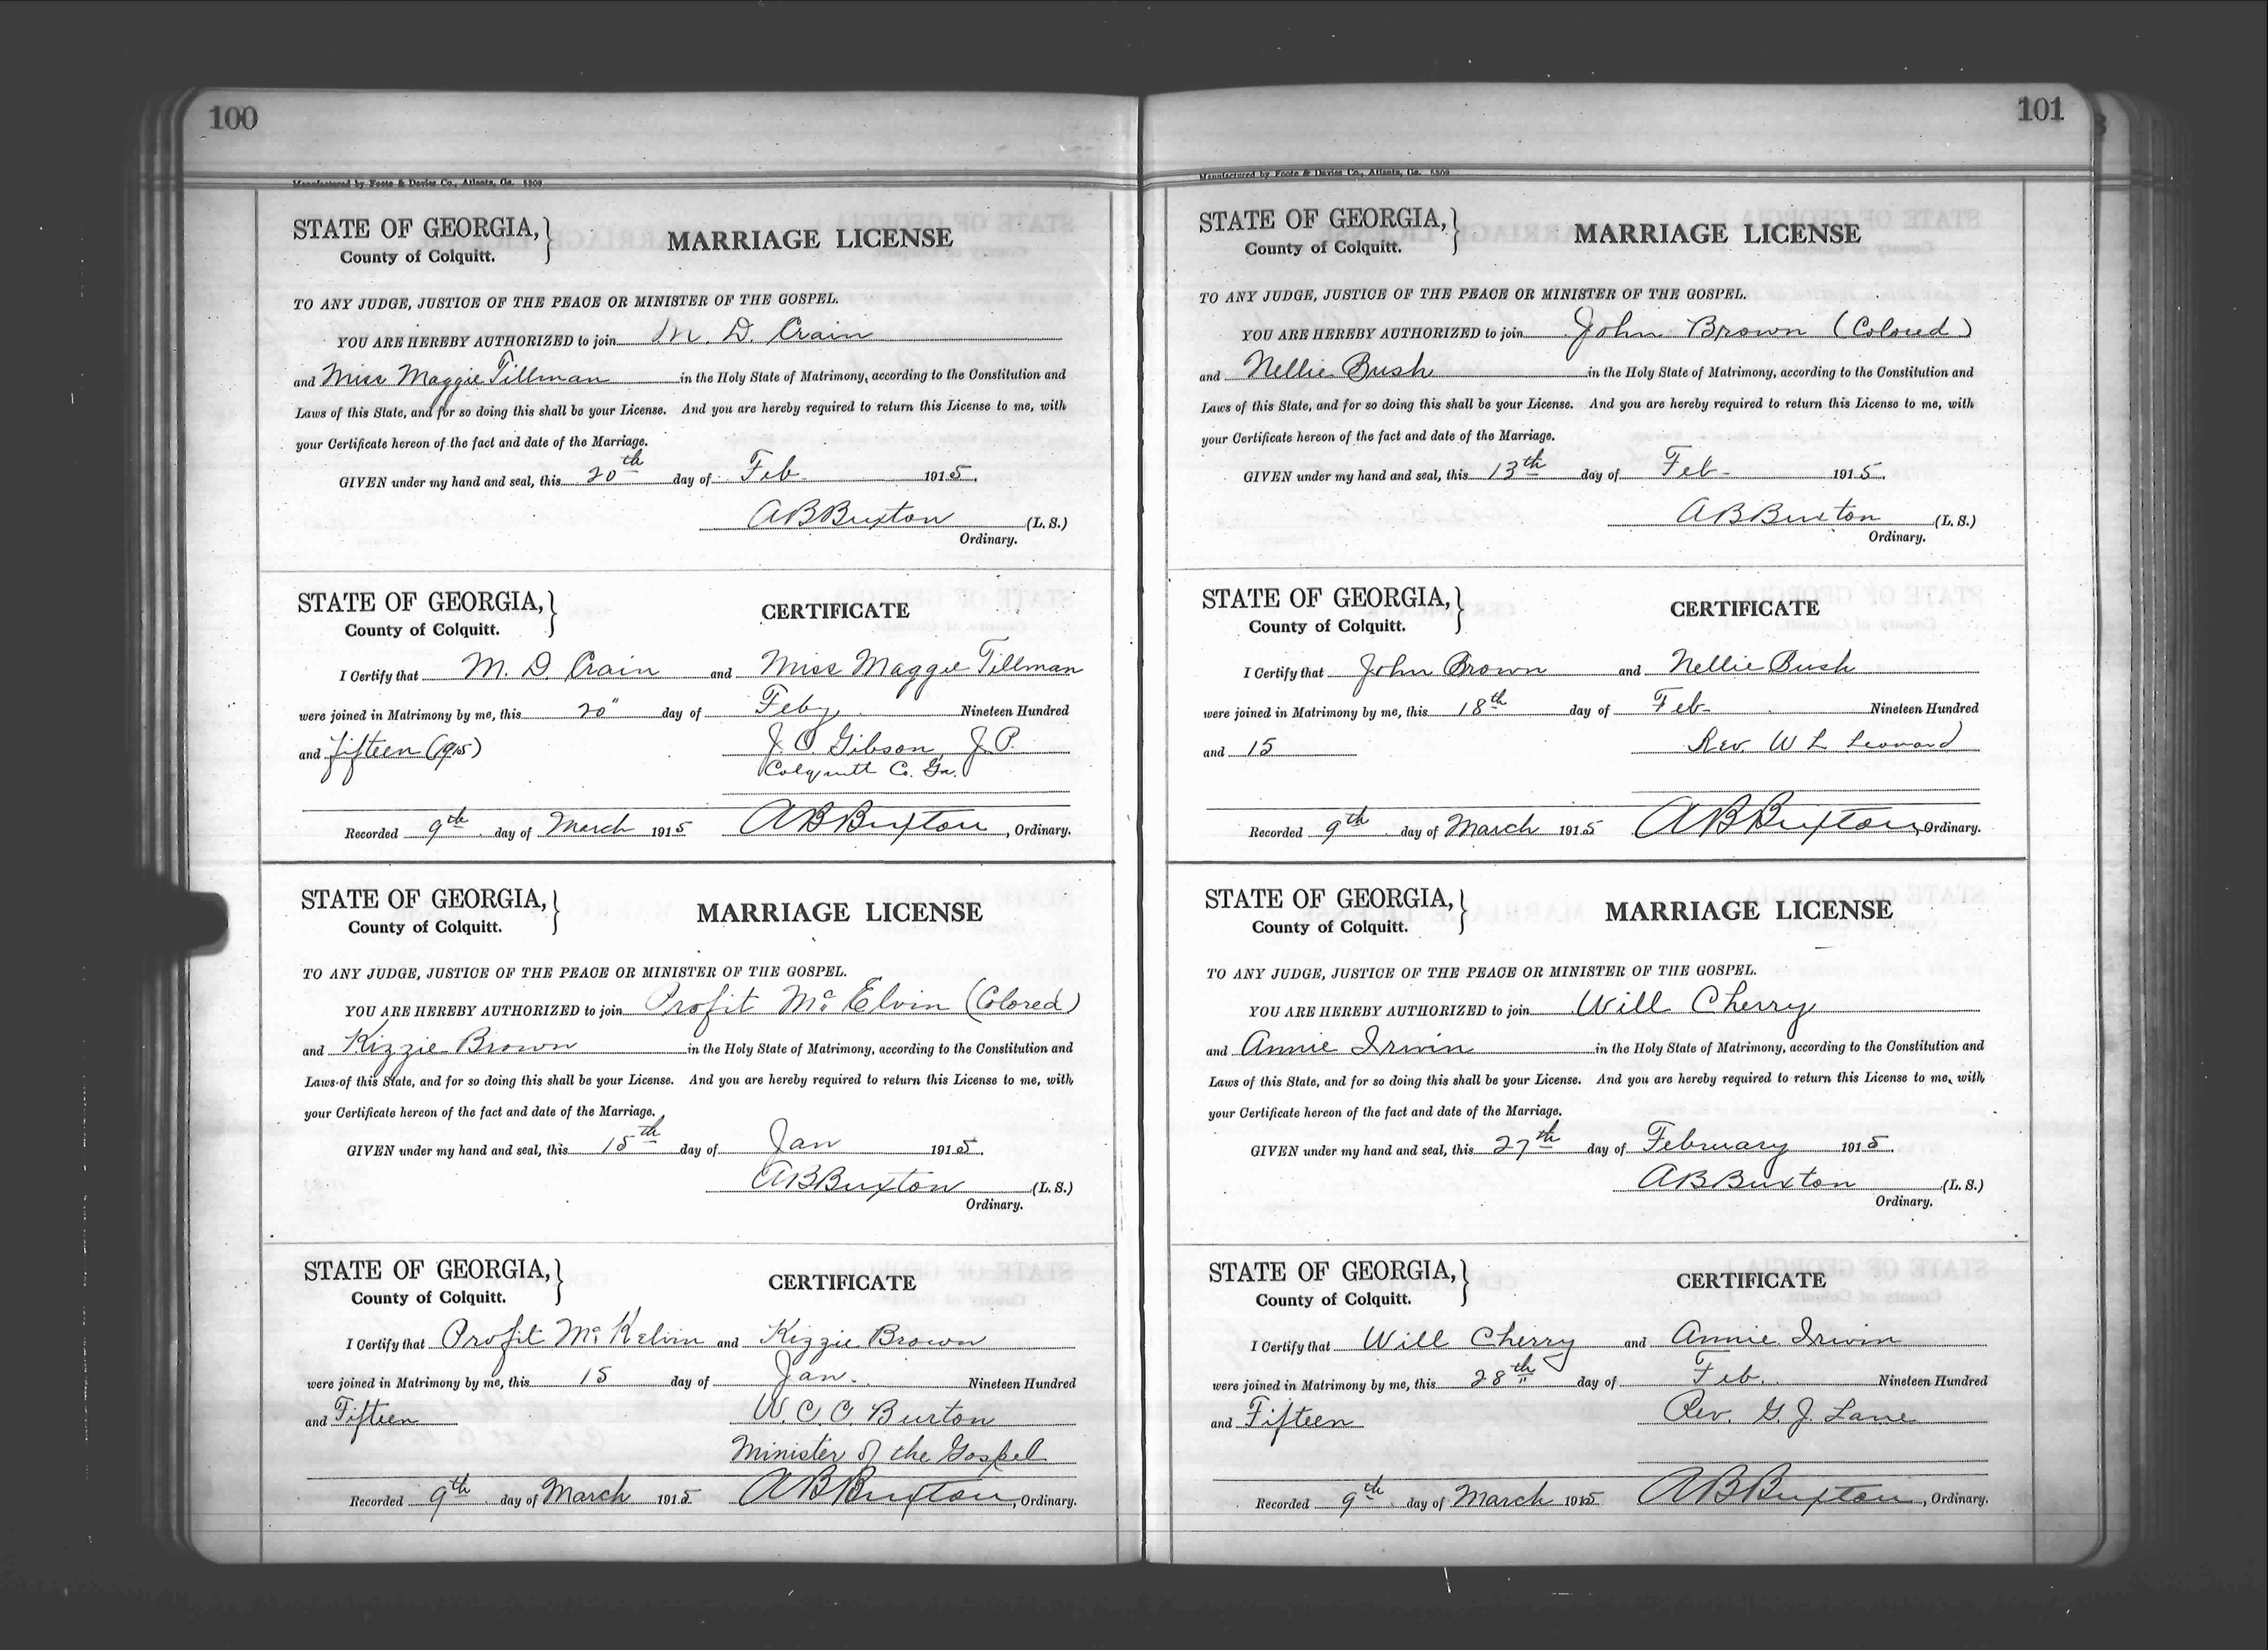 100
Manufactured by Foote & Davies Co., Atlanta, Ga. 5309
STATE OF GEORGIA,
County of Colquitt.
MARRIAGE LICENSE
TO ANY JUDGE, JUSTICE OF THE PEACE OR MINISTER OF THE GOSPEL.
YOU ARE HEREBY AUTHORIZED to join M. D. Crain
and Miss Maggie Tillman in the Holy State of Matrimony, according to the Constitution and
Laws of this State, and for so doing this shall be your License. And you are hereby required to return this License to me, with
your Certificate hereon of the fact and date of the Marriage.
GIVEN under my hand and seal, this 20th day of Feb. 1915.
A B Buxton (L. S.)
Ordinary.
STATE OF GEORGIA,
County of Colquitt.
CERTIFICATE
I Certify that M. D. Crain and Miss Maggie Tillman
were joined in Matrimony by me, this 20" day of Feby, Nineteen Hundred
and fifteen (1915) J. O. Gibson, J. P.
Colquitt Co. Ga.
Recorded 9th day of March 1915 A B Buxton, Ordinary.
STATE OF GEORGIA,
County of Colquitt.
MARRIAGE LICENSE
TO ANY JUDGE, JUSTICE OF THE PEACE OR MINISTER OF THE GOSPEL.
YOU ARE HEREBY AUTHORIZED to join Profit Mc Elvin (Colored)
and Kizzie Brown in the Holy State of Matrimony, according to the Constitution and
Laws of this State, and for so doing this shall be your License. And you are hereby required to return this License to me, with
your Certificate hereon of the fact and date of the Marriage.
GIVEN under my hand and seal, this 15th day of Jan 1915.
A B Buxton (L. S.)
Ordinary.
STATE OF GEORGIA,
County of Colquitt.
CERTIFICATE
I Certify that Profit Mc Kelvin and Kizzie Brown
were joined in Matrimony by me, this 15 day of Jan. Nineteen Hundred
and Fifteen W. C. C. Burton
Minister of the Gospel
Recorded 9th day of March 1915 A B Buxton, Ordinary.
101
Manufactured by Foote & Davies Co., Atlanta, Ga. 5309
STATE OF GEORGIA,
County of Colquitt.
MARRIAGE LICENSE
TO ANY JUDGE, JUSTICE OF THE PEACE OR MINISTER OF THE GOSPEL.
YOU ARE HEREBY AUTHORIZED to join John Brown (Colored)
and Nellie Bush in the Holy State of Matrimony, according to the Constitution and
Laws of this State, and for so doing this shall be your License. And you are hereby required to return this License to me, with
your Certificate hereon of the fact and date of the Marriage.
GIVEN under my hand and seal, this 13th day of Feb- 1915.
A B Buxton (L. S.)
Ordinary.
STATE OF GEORGIA,
County of Colquitt.
CERTIFICATE
I Certify that John Brown and Nellie Bush
were joined in Matrimony by me, this 18th day of Feb- Nineteen Hundred
and 15 Rev W L Leonard
Recorded 9th day of March 1915 A B Buxton, Ordinary.
STATE OF GEORGIA,
County of Colquitt.
MARRIAGE LICENSE
TO ANY JUDGE, JUSTICE OF THE PEACE OR MINISTER OF THE GOSPEL.
YOU ARE HEREBY AUTHORIZED to join Will Cherry
and Annie Irwin in the Holy State of Matrimony, according to the Constitution and
Laws of this State, and for so doing this shall be your License. And you are hereby required to return this License to me, with
your Certificate hereon of the fact and date of the Marriage.
GIVEN under my hand and seal, this 27th day of February 1915.
A B Buxton (L. S.)
Ordinary.
STATE OF GEORGIA,
County of Colquitt.
CERTIFICATE
I Certify that Will Cherry and Annie Irwin
were joined in Matrimony by me, this 28th day of Feb. Nineteen Hundred
and Fifteen Rev. G. J. Lane
Recorded 9th day of March 1915 A B Buxton, Ordinary.